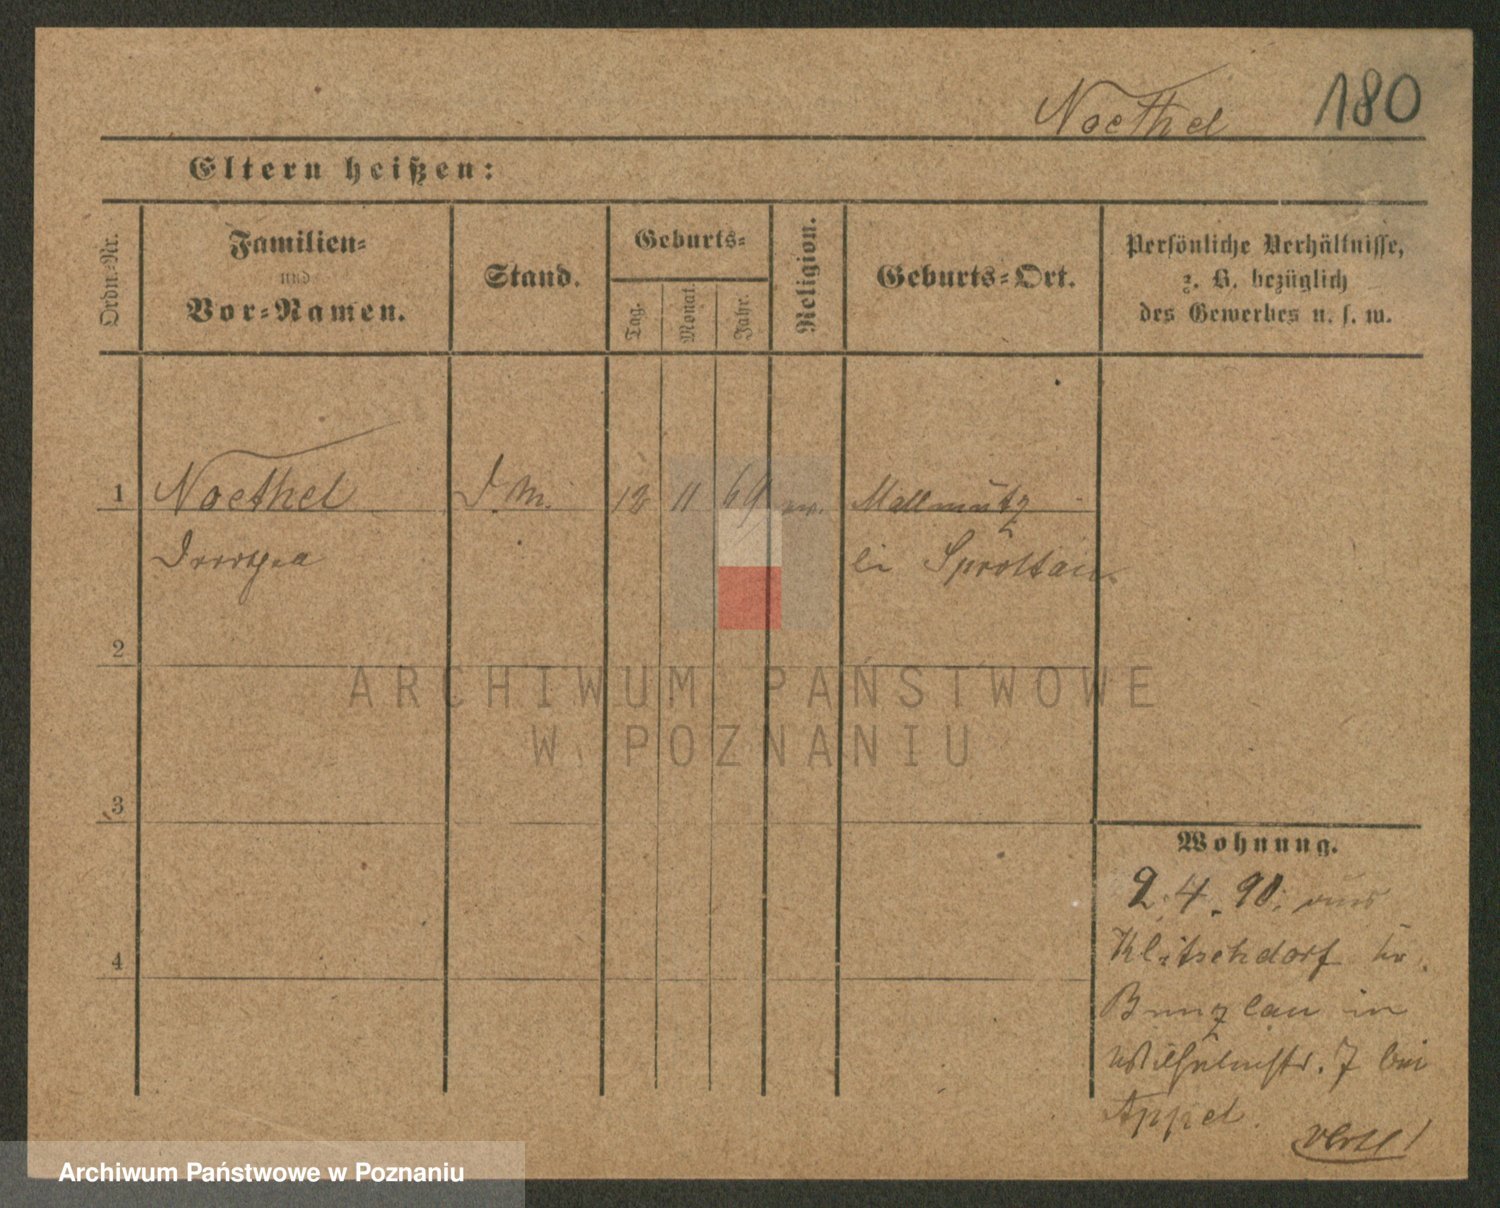 Noethel 180
Eltern heißen:
Ordn.=Nr.
Familien=
und
Vor=Namen.
Stand.
Geburts=
Tag.
Monat.
Jahr.
Religion.
Geburts=Ort.
Persönliche Verhältnisse,
z. B. bezüglich
des Gewerbes u. s. w.
1 Noethel D. M. 12 11 69 ev. Mallmitz
Dorothea bei Sprottau
2
3
4
Wohnung.
2.4.90. aus
Klitschdorf Kr.
Bunzlau in
Wilhelmstr. 7 bei
Appel.
ARCHIWUM PAŃSTWOWE
W POZNANIU
Archiwum Państwowe w Poznaniu